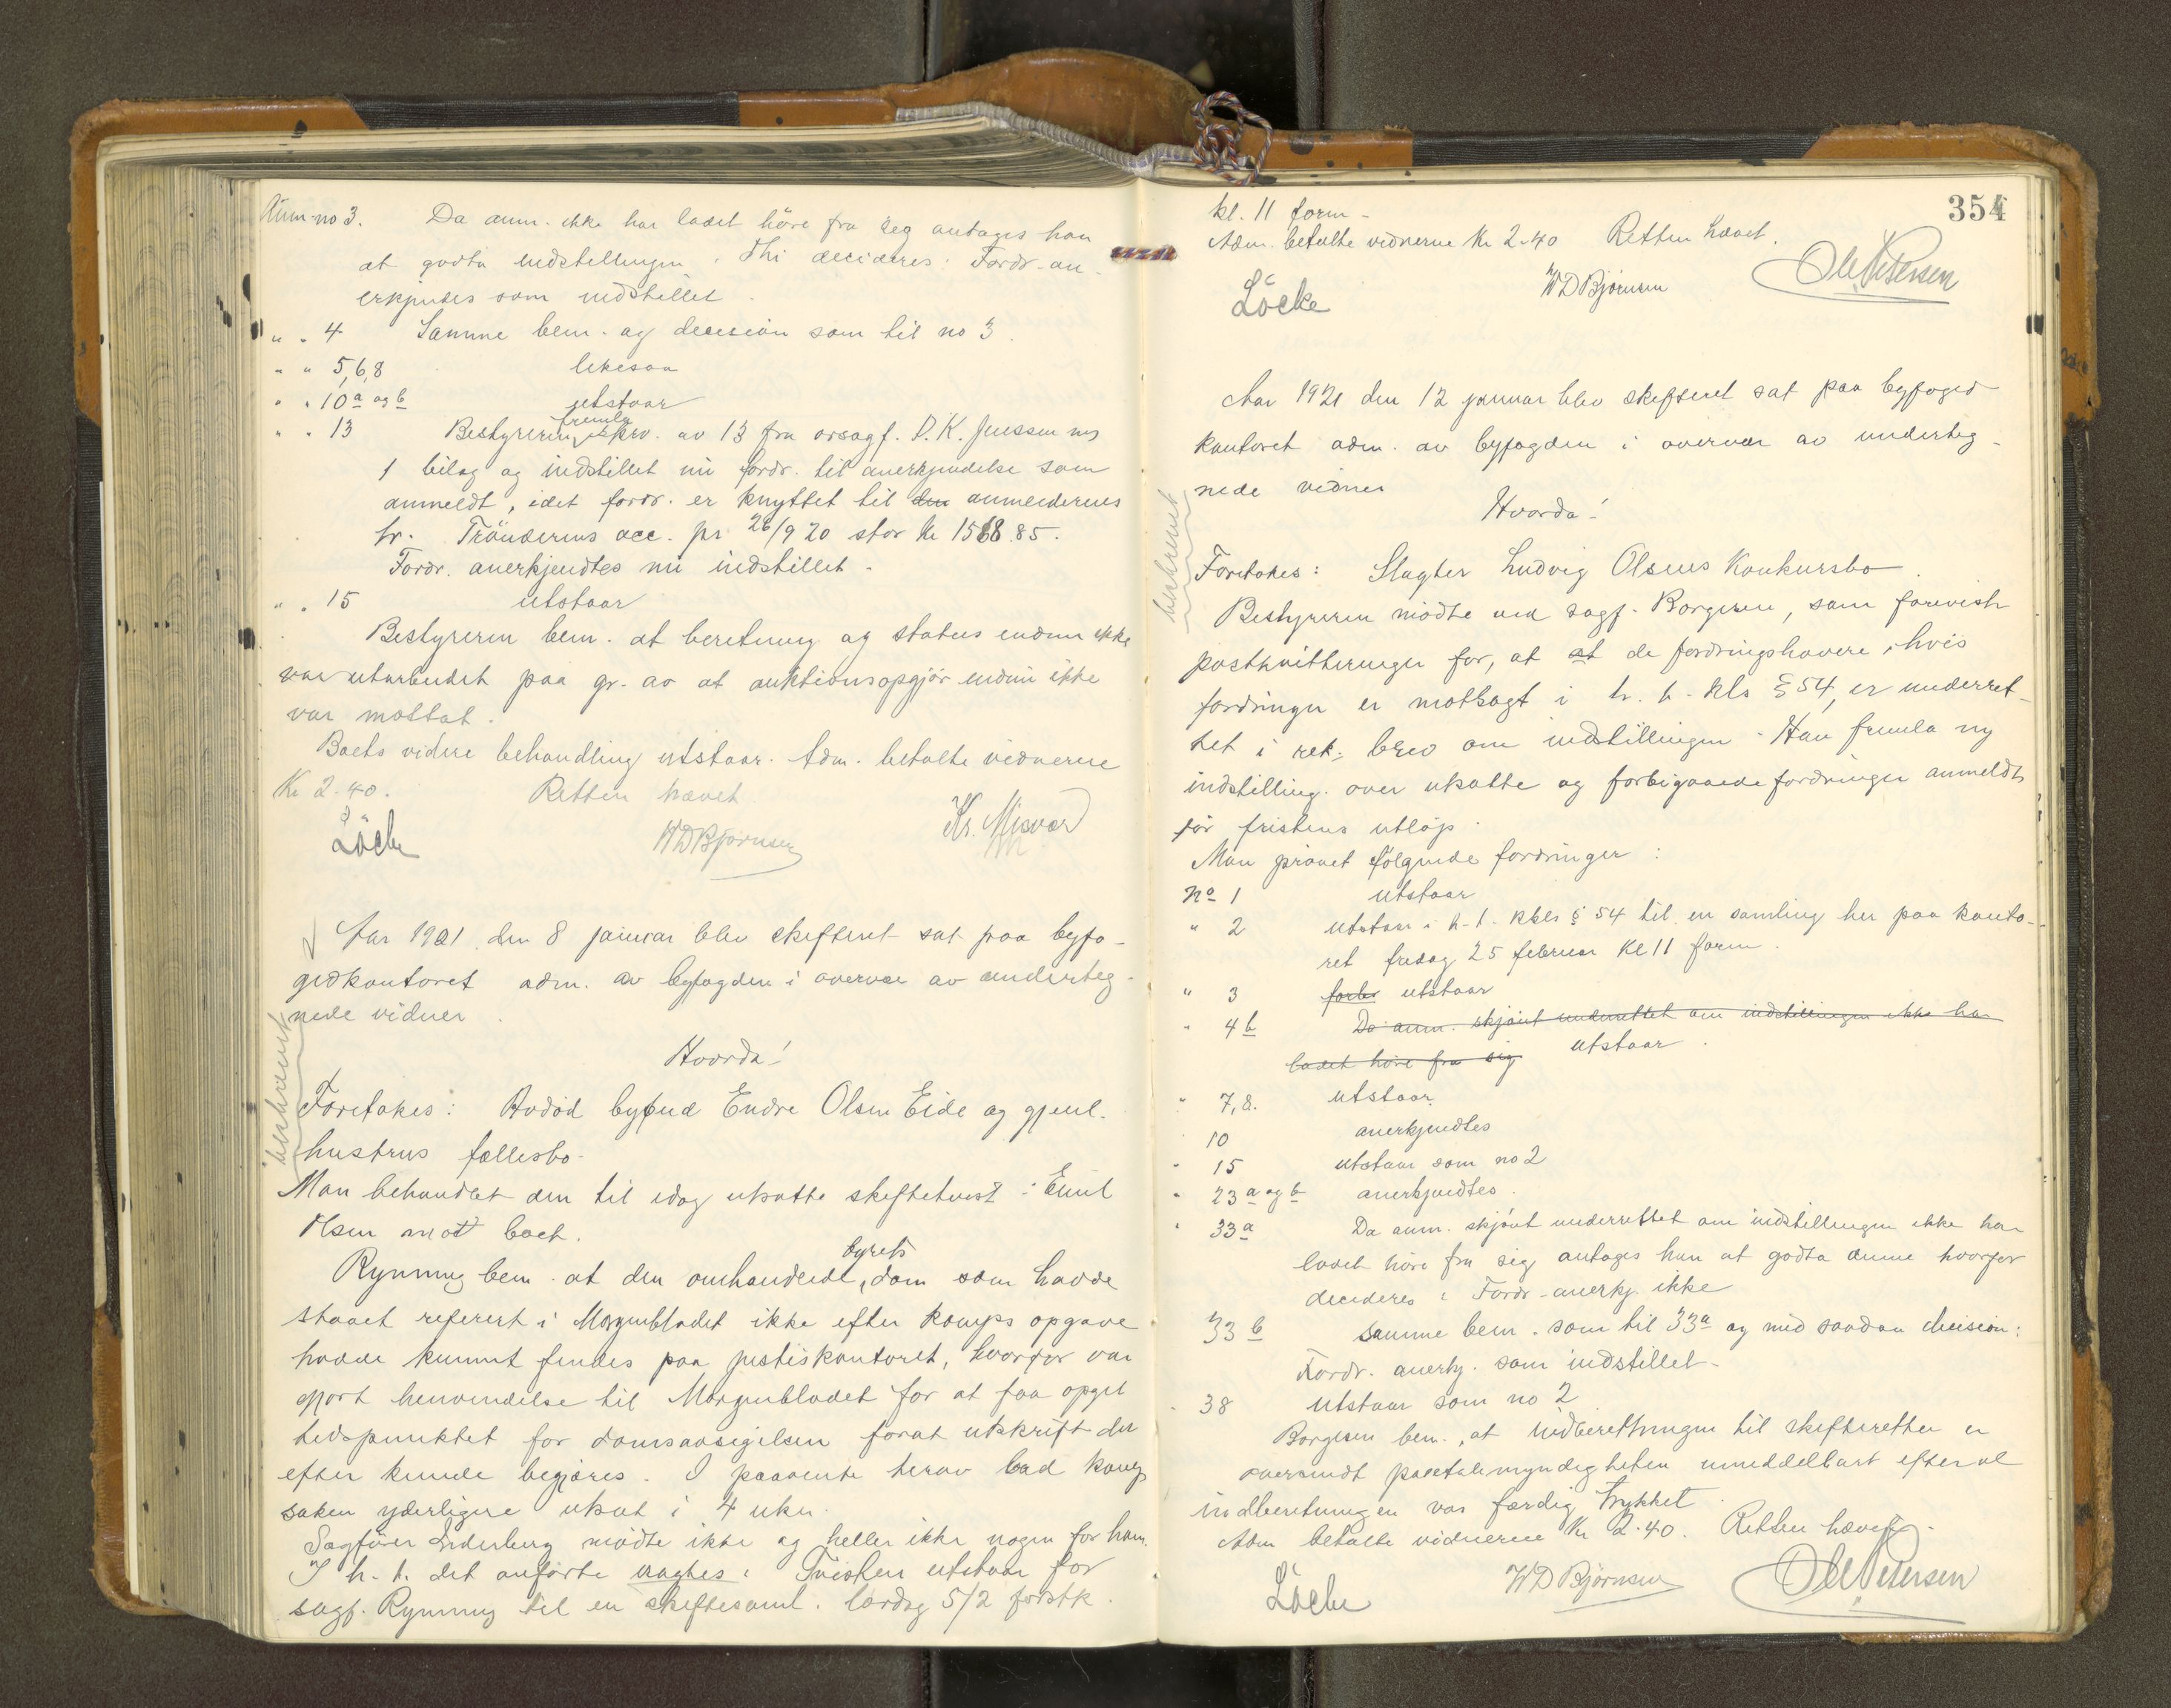 Anm. no 3. Da anm. ikke har ladet höre fra seg antages han
at godta indstellingen. Thi decideres: Fordr. an-
erkjendes som indstillet.
" " 4 Samme bem. og decision som til no 3.
" " 5,6,8 likesaa
" " 10a og b utstaar
" " 13 Bestyreren fremla skrv. av 13 fra orsagf. D. K. Jenssen m/
1 bilag og indstillet nu fordr. til anerkjendelse som
anmeldt, idet fordr. er knyttet til den anmelderens
tr. Tränderens acc. pr 26/9 20 stor kr 1568.85.
Fordr. anerkjendtes nu indstillet.
" " 15 utstaar
Bestyreren bem. at beretning og status endnu ikke
var utarbeidet paa gr. av at auktionsopgjör endnu ikke
var mottat.
Boets videre behandling utstaar. Adm. betalte vidnerne
Kr 2.40. Retten hævet
Löcke WD Bjørnsen Kr. Misvær
Aar 1921 den 8 januar blev skifteret sat paa byfo-
gedkontoret adm. av byfogden i overvær av underteg-
nede vidner.
Hvorda!
beskrevet
Foretokes: Avdöd bybud Endre Olsen Eide og gjenl.
hustrus fællesbo.
Man behandlet den til idag utsatte skiftetvist: Emil
Olsen mot boet.
Rynning bem. at den omhandlede byrets dom som havde
staaet referert i Morgenbladet ikke efter komps opgave
havde kunnet findes paa justiskontoret, hvorfor var
gjort henvendelse til Morgenbladet for at faa opgit
tidspunktet for domsavsigelsen forat utskrift der
efter kunde begjæres. I paavente herav bad komp
saken yderligere utsat i 4 uker.
Sagförer Lederberg mödte ikke og heller ikke nogen for ham.
I h. t. det anförte vagtes: Tvisten utstaar for
sagf. Rynning til en skiftesaml. lördag 5/2 förstk.
354
kl. 11 form.
Adm. betalte vidnerne Kr 2.40 Retten hævet.
Löcke WD Bjørnsen Ole Petersen
Aar 1921 den 12 januar blev skifteret sat paa byfoged
kontoret adm. av byfogden i overvær av underteg-
nede vidner
Hvorda!
beskrevet
Foretokes: Slagter Ludvig Olsens Konkursbo.
Bestyreren mödte ved sagf. Borgersen, som forevist
postkvitteringer for, at at de fordringshavere, hvis
fordringer er motsagt i h. t. kls § 54, er underret-
tet i rek. brev om indstillingen. Han fremla ny
indstilling over utsatte og forbigaaede fordringer anmeldt
för fristens utlöp.
Man prövet fölgende fordringer:
No 1 utstaar
" 2 utstaar i h. t. kkls § 54 til en samling her paa konto-
ret fredag 25 februar kl 11 form.
" 3 forbi utstaar
" 4b Da anm. skjönt underrettet om indstillingen ikke har
ladet höre fra sig utstaar.
" 7,8. utstaar.
" 10 anerkjendtes
" 15 utstaar som no 2
" 23a og b anerkjendtes.
" 33a Da anm. skjönt underrettet om indstillingen ikke har
ladet höre fra sig antages han at godta denne hvorfor
decideres: Fordr. anerkj. ikke
33b samme bem. som til 33a og med saadan decision:
Fordr. anerkj. som indstillet.
" 38 utstaar som no 2
Borgersen bem., at indberetningen til skifteretten er
oversendt paatalemyndigheten umiddelbart efter at
indberetningen var færdig trykket.
Adm betalte vidnerne Kr 2.40. Retten hævet.
Löcke WD Bjørnsen Ole Petersen